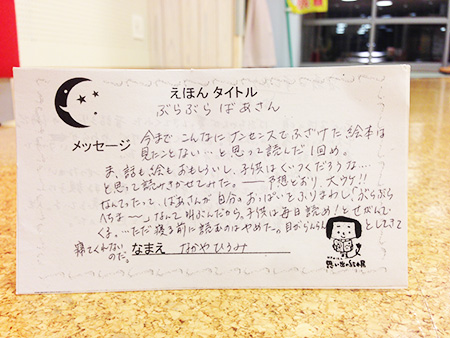 えほん タイトル
ぶらぶらばあさん
メッセージ
今まで こんなにナンセンスでふざけた絵本は
見たことない…と思って読んだ1回め。
ま、話も絵もおもしろいし、子供はくいつくだろうな…
と思って読みきかせてみた。――予想どおり、大ウケ!!
なんてったって、ばあさんが自分のおっぱいをふりまわし、「ぶらぶら
〜」なんて叫ぶんだから、子供は毎日読め!とせがんで
くる。…ただ寝る前に読むのはやめた。目がらんらんとしてきて
寝てくれない
のだ。
なまえ なかやひろみ
思い出のSTAR